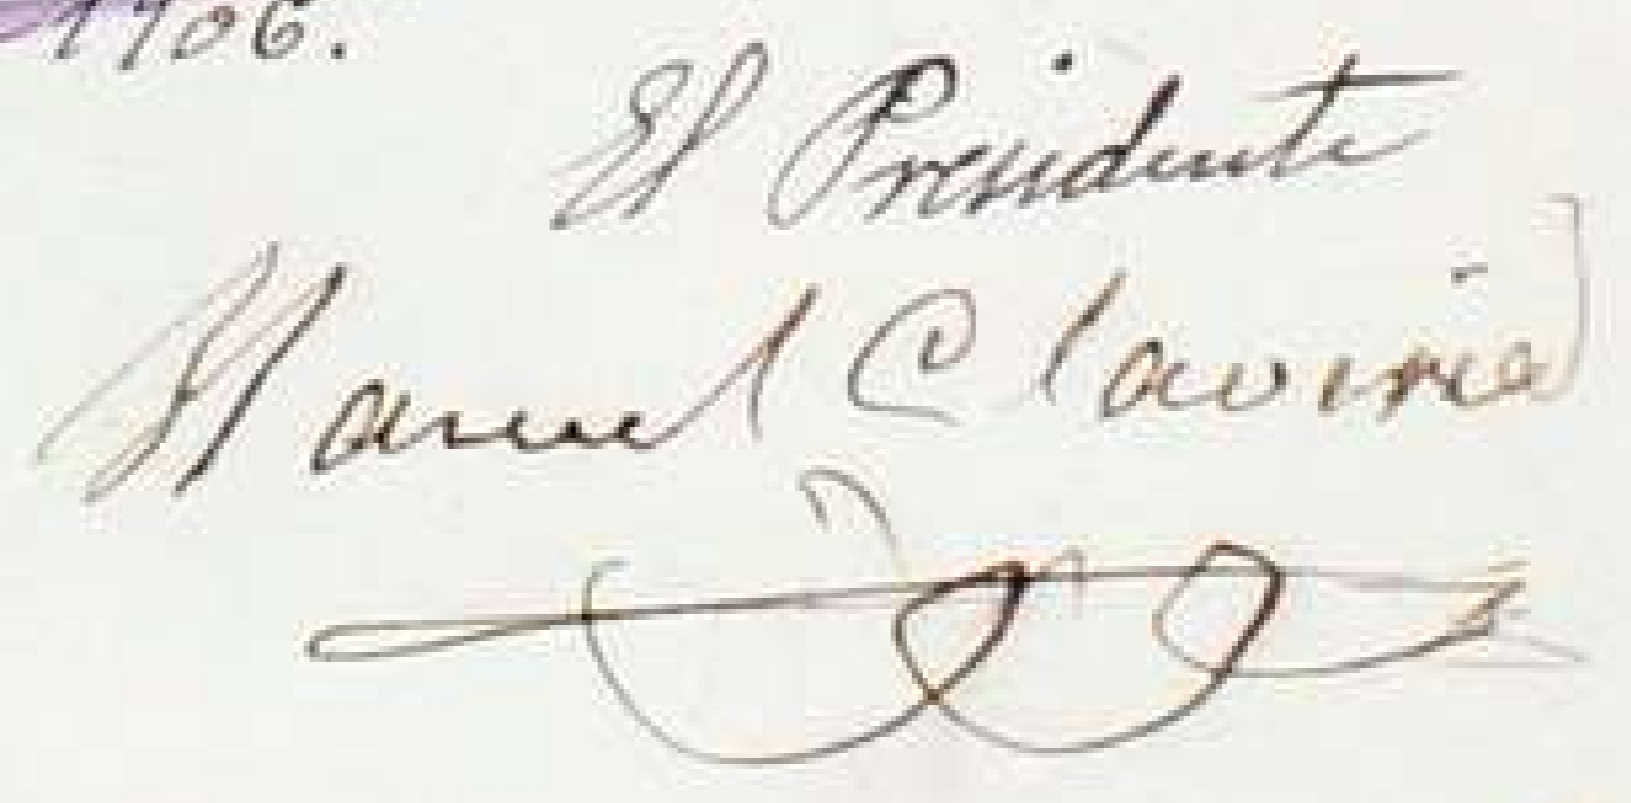 1906.
El Presidente
Manuel Claviria